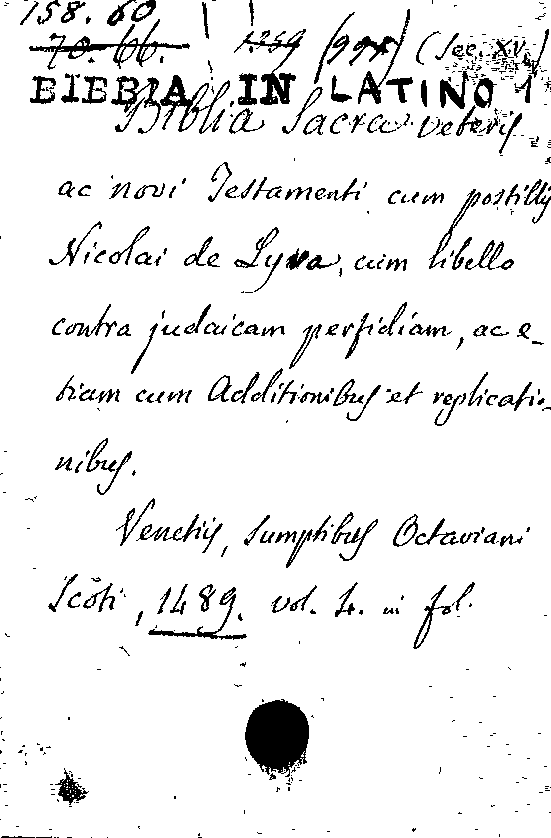 158. 60
70. 66. 1259 (997) (Sec. XV)
BIBBIA IN LATINO 1
Biblia Sacra veteris
ac novi Testamenti cum postillis
Nicolai de Lyra, cum libello
contra judaicam perfidiam, ac e-
tiam cum Additionibus et replicatio-
nibus.
Venetiis, sumptibus Octaviani
Scōti, 1489. vol. 4. in fol.